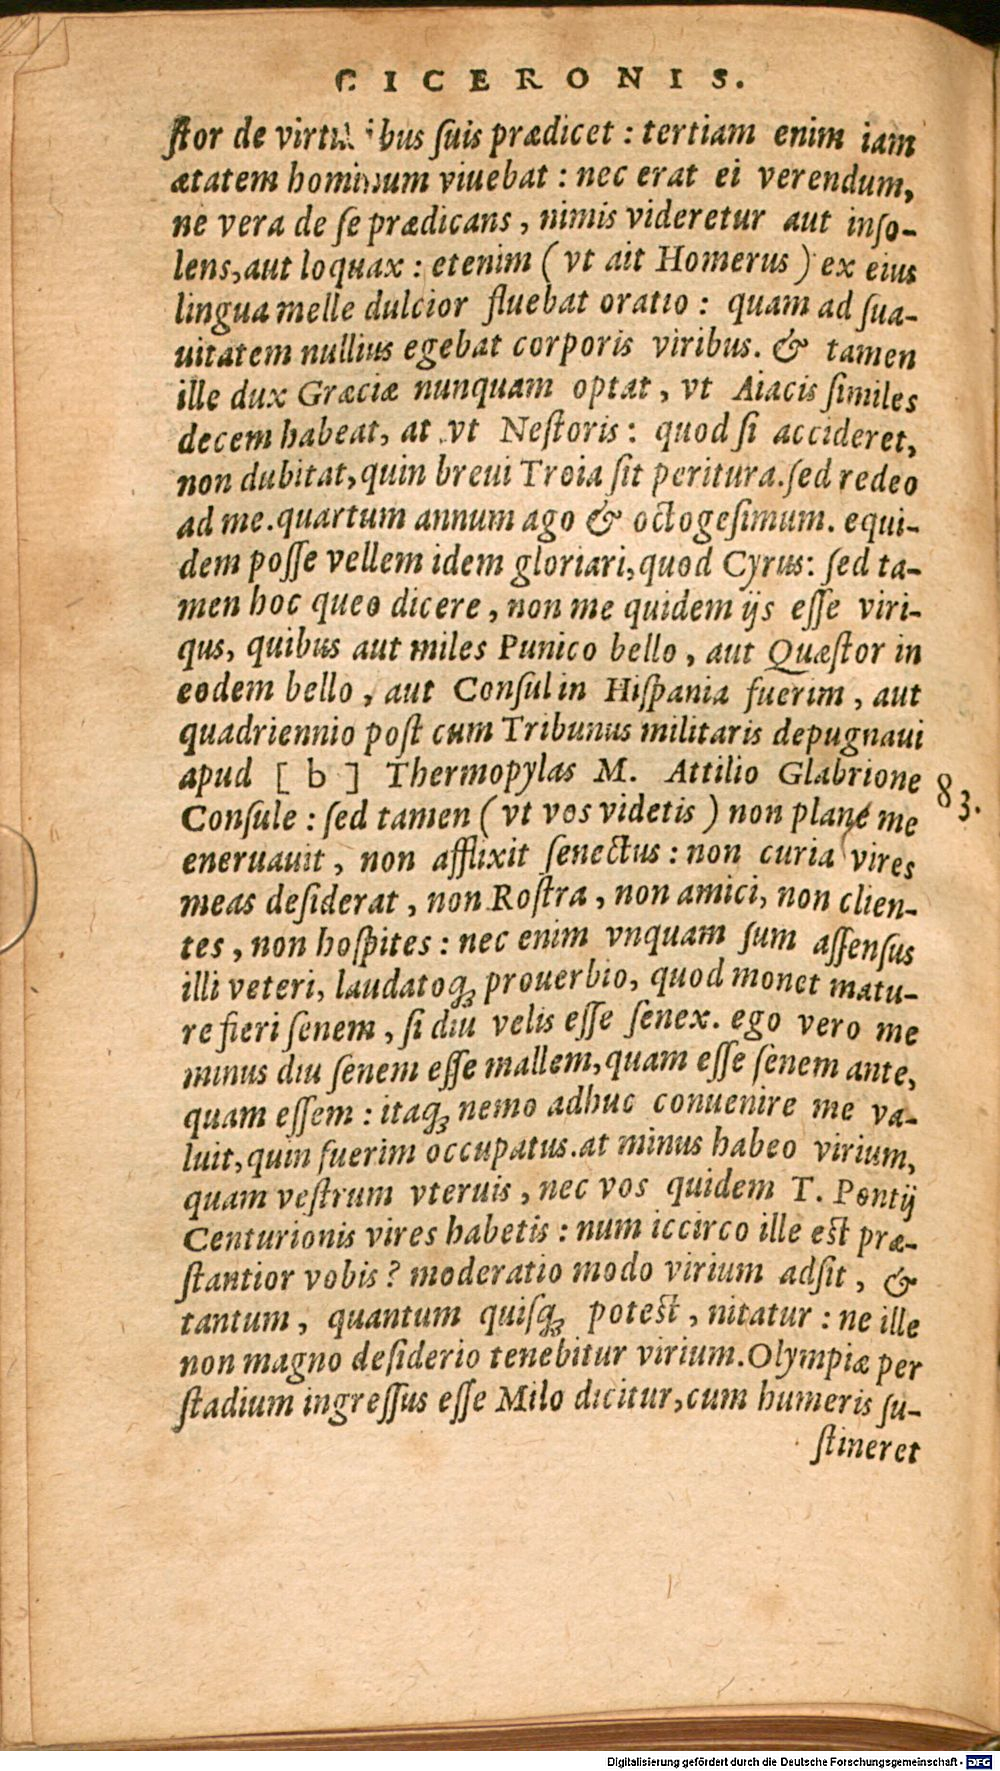 CICERONIS.
ſtor de virtutibus ſuis prædicet : tertiam enim iam
ætatem hominum viuebat : nec erat ei verendum,
ne vera de ſe prædicans, nimis videretur aut inſo-
lens, aut loquax : etenim ( vt ait Homerus ) ex eius
lingua melle dulcior fluebat oratio : quam ad ſua-
uitatem nullius egebat corporis viribus. & tamen
ille dux Græciæ nunquam optat, vt Aiacis ſimiles
decem habeat, at vt Neſtoris : quod ſi accideret,
non dubitat, quin breui Troia ſit peritura. ſed redeo
ad me. quartum annum ago & octogeſimum. equi-
dem poſſe vellem idem gloriari, quod Cyrus : ſed ta-
men hoc queo dicere, non me quidem ijs eſſe viri-
qus, quibus aut miles Punico bello, aut Quæſtor in
eodem bello, aut Conſul in Hiſpania fuerim, aut
quadriennio poſt cum Tribunus militaris depugnaui
apud [ b ] Thermopylas M. Attilio Glabrione
83.
Conſule : ſed tamen ( vt vos videtis ) non planè me
eneruauit, non afflixit ſenectus : non curia vires
meas deſiderat, non Roſtra, non amici, non clien-
tes, non hoſpites : nec enim vnquam ſum aſſenſus
illi veteri, laudatoq́ꝫ prouerbio, quod monet matu-
re fieri ſenem, ſi diu velis eſſe ſenex. ego vero me
minus diu ſenem eſſe mallem, quam eſſe ſenem ante,
quam eſſem : itaq́ꝫ nemo adhuc conuenire me va-
luit, quin fuerim occupatus. at minus habeo virium,
quam veſtrum vteruis, nec vos quidem T. Pontij
Centurionis vires habetis : num iccirco ille eſt præ-
ſtantior vobis? moderatio modo virium adſit, &
tantum, quantum quiſq́ꝫ poteſt, nitatur : ne ille
non magno deſiderio tenebitur virium. Olympiæ per
ſtadium ingreſſus eſſe Milo dicitur, cum humeris ſu-
ſtineret
Digitalisierung gefördert durch die Deutsche Forschungsgemeinschaft - DFG